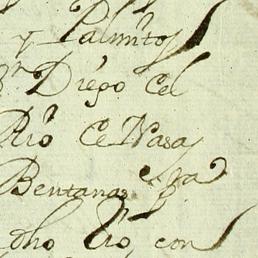 y Palmitos
Dn Diego Cel
Rio Ce Nasas
Bentanas
dho Rio con